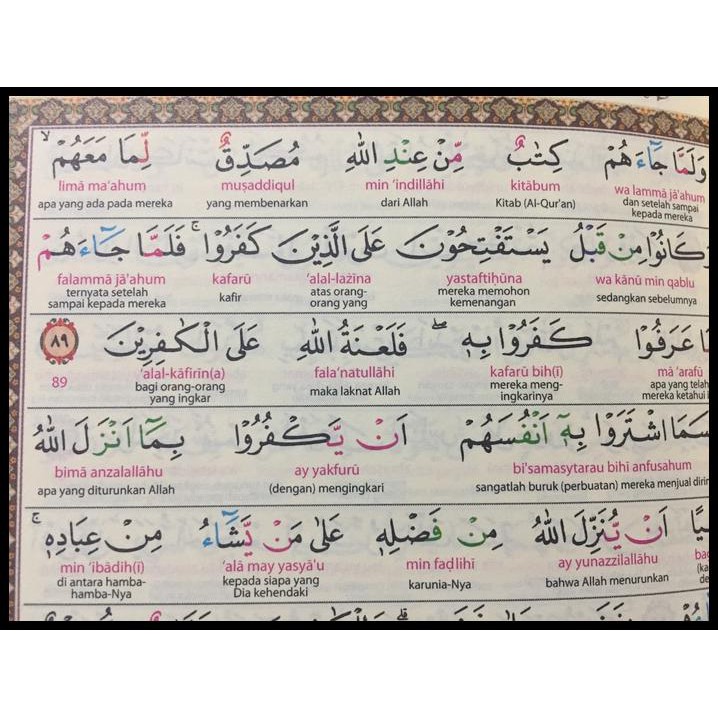 وَلَمَّا جَاۤءَهُمْ كِتٰبٌ مِّنْ عِنْدِ اللّٰهِ مُصَدِّقٌ لِّمَا مَعَهُمْۙ
wa lammā jā'ahum kitābum min 'indillāhi muṣaddiqul limā ma'ahum
dan setelah sampai kepada mereka Kitab (Al-Qur'an) dari Allah yang membenarkan apa yang ada pada mereka
وَكَانُوْا مِنْ قَبْلُ يَسْتَفْتِحُوْنَ عَلَى الَّذِيْنَ كَفَرُوْاۚ فَلَمَّا جَاۤءَهُمْ
wa kānū min qablu yastaftiḥūna 'alal-lażīna kafarū falammā jā'ahum
sedangkan sebelumnya mereka memohon kemenangan atas orang-orang yang kafir ternyata setelah sampai kepada mereka
عَرَفُوْا كَفَرُوْا بِهٖۖ فَلَعْنَةُ اللّٰهِ عَلَى الْكٰفِرِيْنَ ٨٩
mā 'arafū kafarū bih(ī) fala'natullāhi 'alal-kāfirīn(a) 89
apa yang telah mereka ketahui mereka meng-ingkarinya maka laknat Allah bagi orang-orang yang ingkar
اشْتَرَوْا بِهٖٓ اَنْفُسَهُمْ اَنْ يَّكْفُرُوْا بِمَآ اَنْزَلَ اللّٰهُ
bi'samasytarau bihī anfusahum ay yakfurū bimā anzalallāhu
sangatlah buruk (perbuatan) mereka menjual (dengan) mengingkari apa yang diturunkan Allah
اَنْ يُّنَزِّلَ اللّٰهُ مِنْ فَضْلِهٖ عَلٰى مَنْ يَّشَاۤءُ مِنْ عِبَادِهٖۚ
ay yunazzilallāhu min faḍlihī 'alā may yasyā'u min 'ibādih(ī)
bahwa Allah menurunkan karunia-Nya kepada siapa yang Dia kehendaki di antara hamba-hamba-Nya